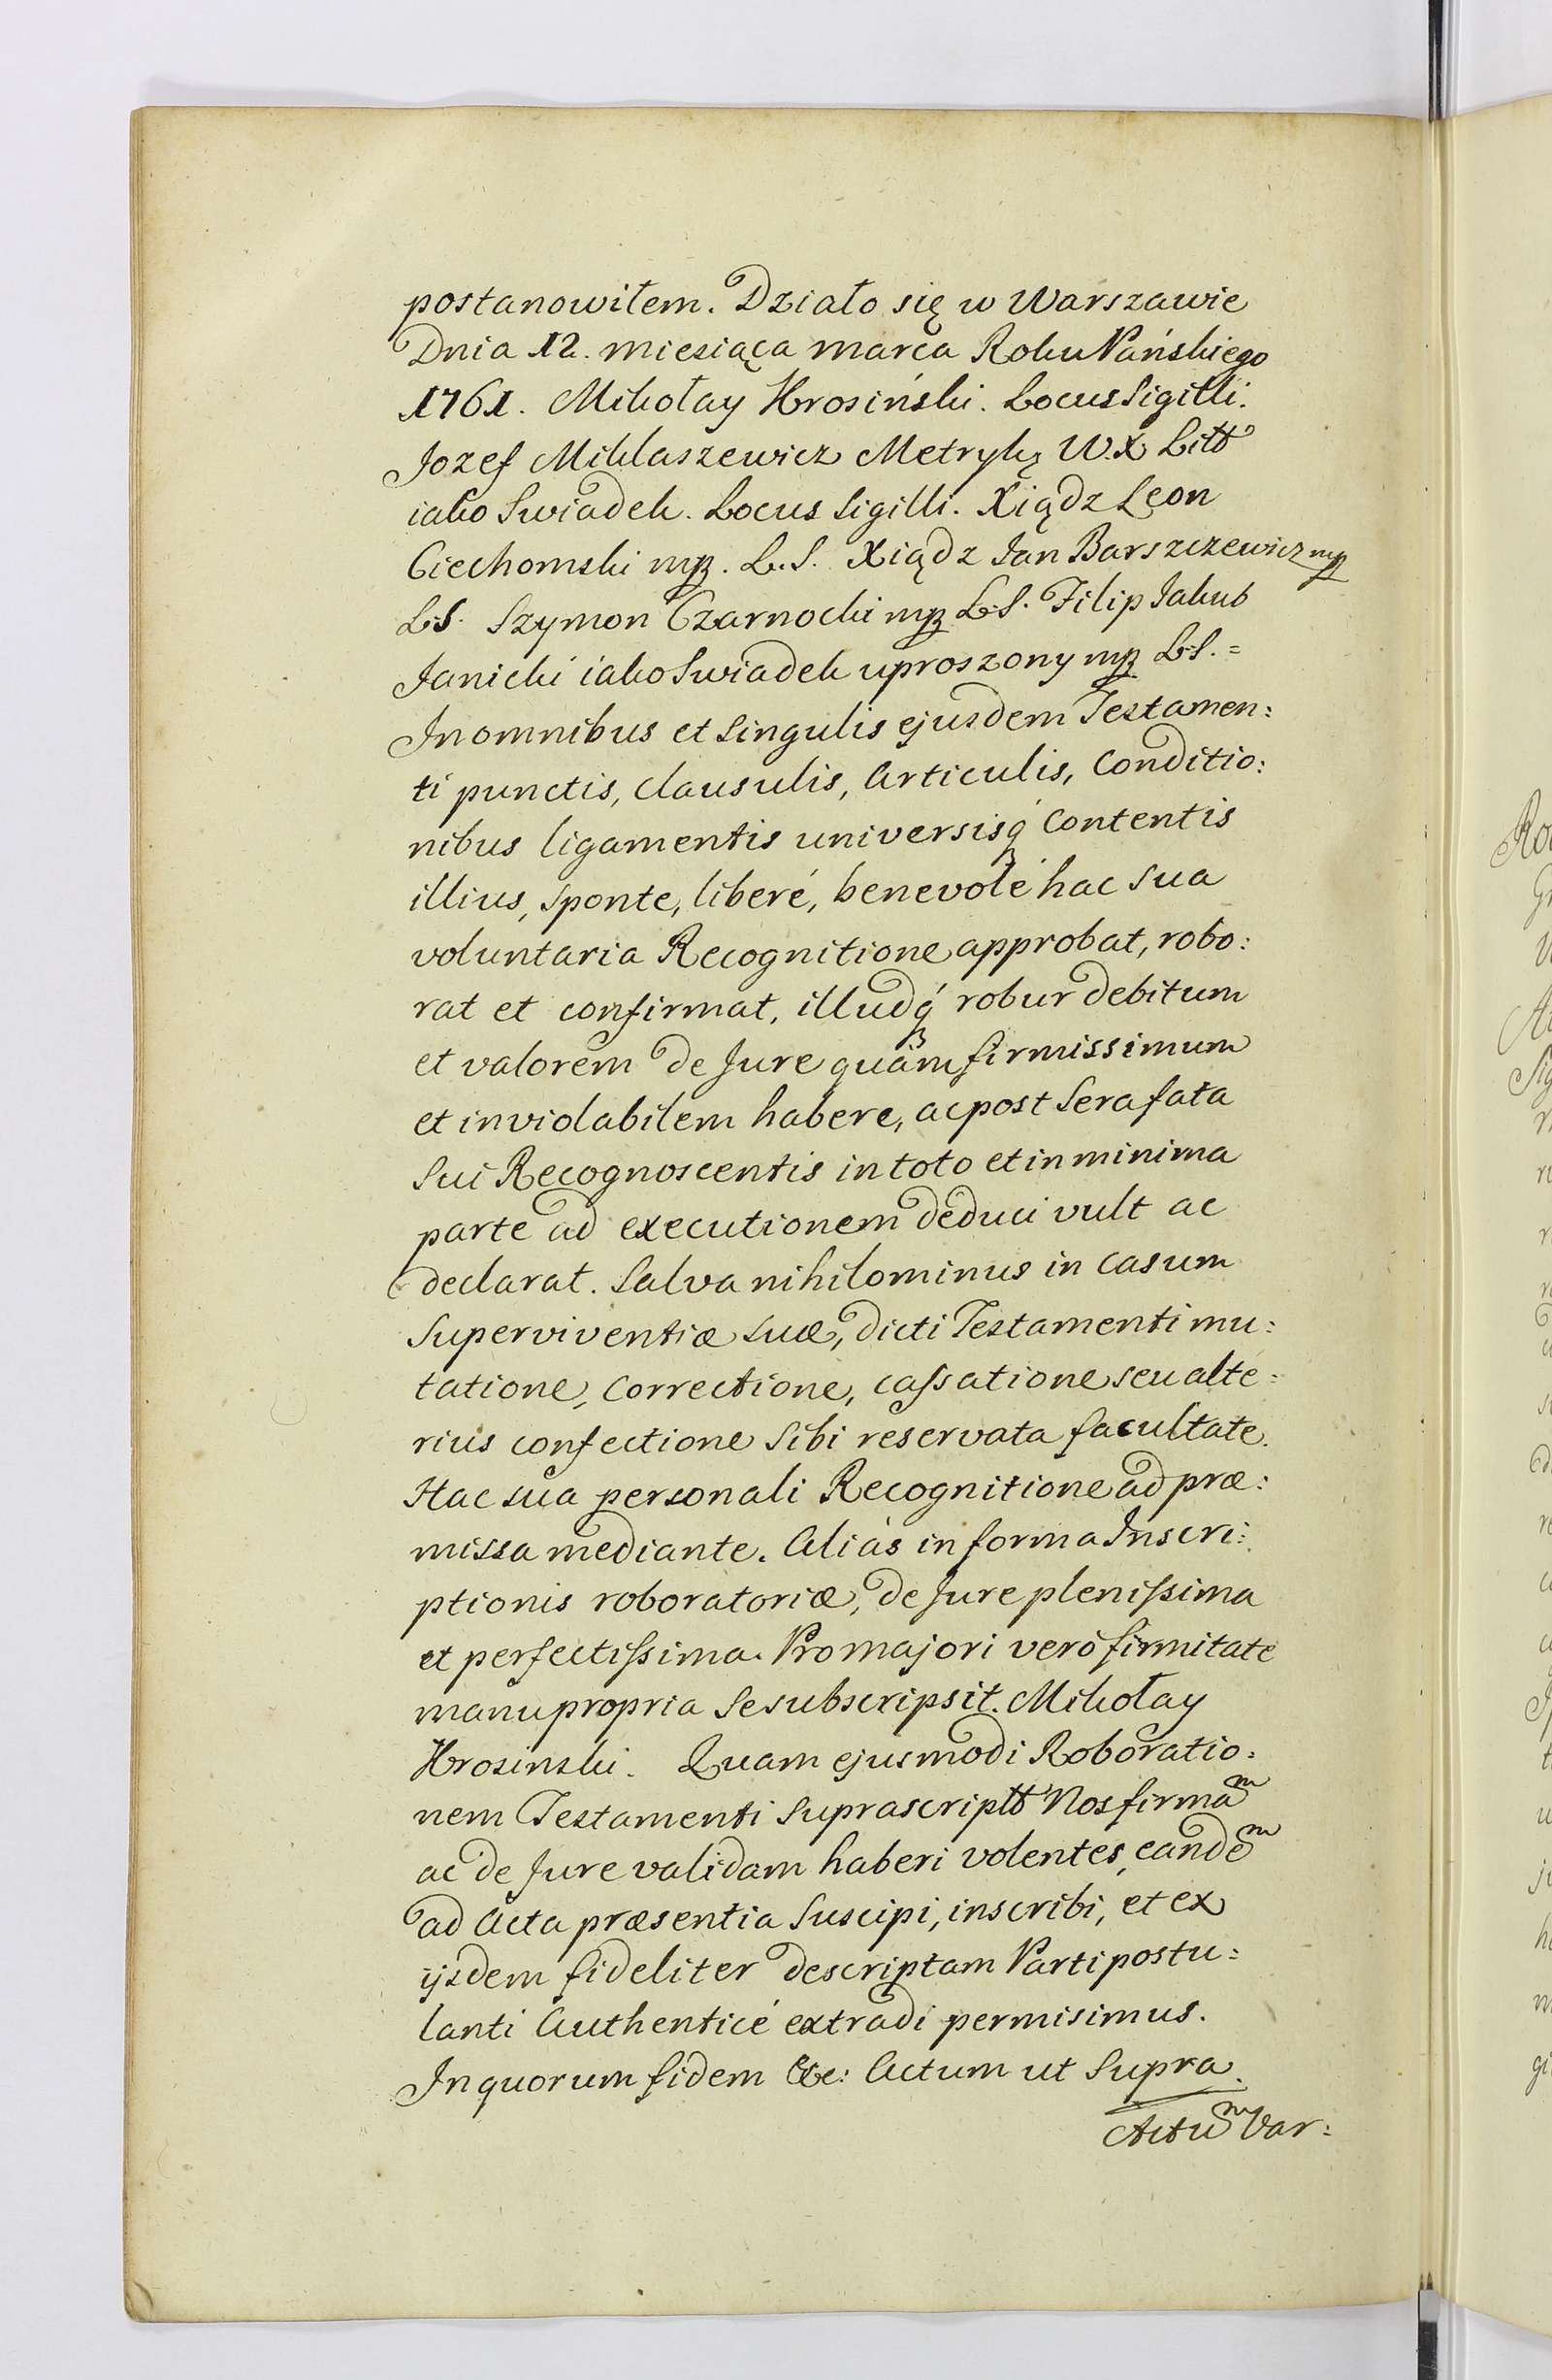 postanowiłem. Działo się w Warszawie
Dnia 12. miesiąca marca Roku Pańskiego
1761. Mikołay Krosiński. Locus Sigilli.
Jozef Miklaszewicz Metryk: W. X Litt
iako Swiadek. Locus Sigilli. Xiądz Leon
Ciechomski mp. L. S. Xiądz Jan Barszczewicz mp
L:S. Szymon Czarnocki mp L:S. Filip Jakub
Janicki iako Swiadek uproszony mp L:S.=
In omnibus et Singulis ejusdem Testamen:
ti punctis, clausulis, Articulis, Conditio:
nibus ligamentis universisq́ Contentis
illius, sponte, liberé, benevolé hac sua
voluntaria Recognitione approbat, robo:
rat et confirmat, illudq́ robur debitum
et valorem de Jure quàm firmissimum
et inviolabilem habere, ac post Sera fata
Sui Recognoscentis in toto et in minima
parte ad executionem deduci vult ac
declarat. Salva nihilominus in casum
Superviventiæ suæ, dicti Testamenti mu:
tatione, Correctione, cassatione seu alte:
rius confectione Sibi reservata facultate.
Hac sua personali Recognitione ad præ:
missa mediante. Aliàs in forma Inscri:
ptionis roboratoriæ, de Jure plenissima
et perfectissima. Pro majori verò firmitate
manu propria Se subscripsit. Mikołay
Krosinski. Quam ejusmodi Roboratio:
nem Testamenti Suprascriptt Nos firmam
ac de Jure validam haberi volentes, eandem
ad Acta præsentia Suscipi, inscribi, et ex
ijsdem fideliter descriptam Parti postu:
lanti Authenticé extradi permisimus.
In quorum fidem &c: Actum ut Supra.
Actum Var: